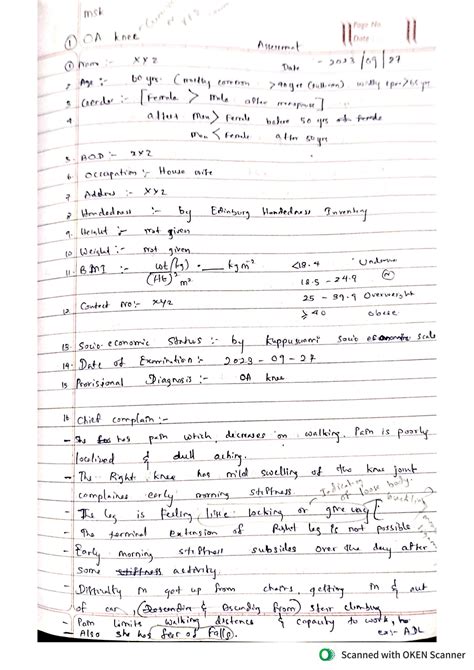 msk
Page No.
Date
① OA knee
Assessment
① Name :- XYZ Date - 2023/09/27
2 Age :- 60 yrs.
3 Gender :- [Female > Male after menopause]
4 affect Men > Female before 50 yrs
Men < Female after 50 yrs
5. AOD :- XYZ
6 Occupation :- House wife
7. Address :- XYZ
8 Handedness :- by Edinburg Handedness Inventory
9. Height :- not given
10 Weight :- not given
11. BMI :- wt(kg) . ___ kgm-2 <18.4
(Ht)2 m2 18.5 - 24.9 (N)
25 - 39.9 Overweight
12. Contact No:- XYZ ≥40 obese
13. Socio-economic status :- by Kuppuswami socio economic scale
14. Date of Examination :- 2023 - 09 - 27
15 Provisional Diagnosis :- OA knee
16 Chief complain :-
- She has pain which decreases on walking. Pain is poorly
localised & dull aching.
- The Right knee has mild swelling of the knee joint
complaines early morning stiffness.
Indicating of loose body.
buckling
- The leg is feeling little locking or give way
- The terminal extension of Right leg is not possible
- Early morning stiffness subsides over the day after
some stiffness activity.
- Difficulty in got up from chairs, getting in & out
of car, Descending & Ascending from stair climbing
- Pain limits walking distence & capacity to work,
- Also she has fear of falls. ex:- ADL
Scanned with OKEN Scanner